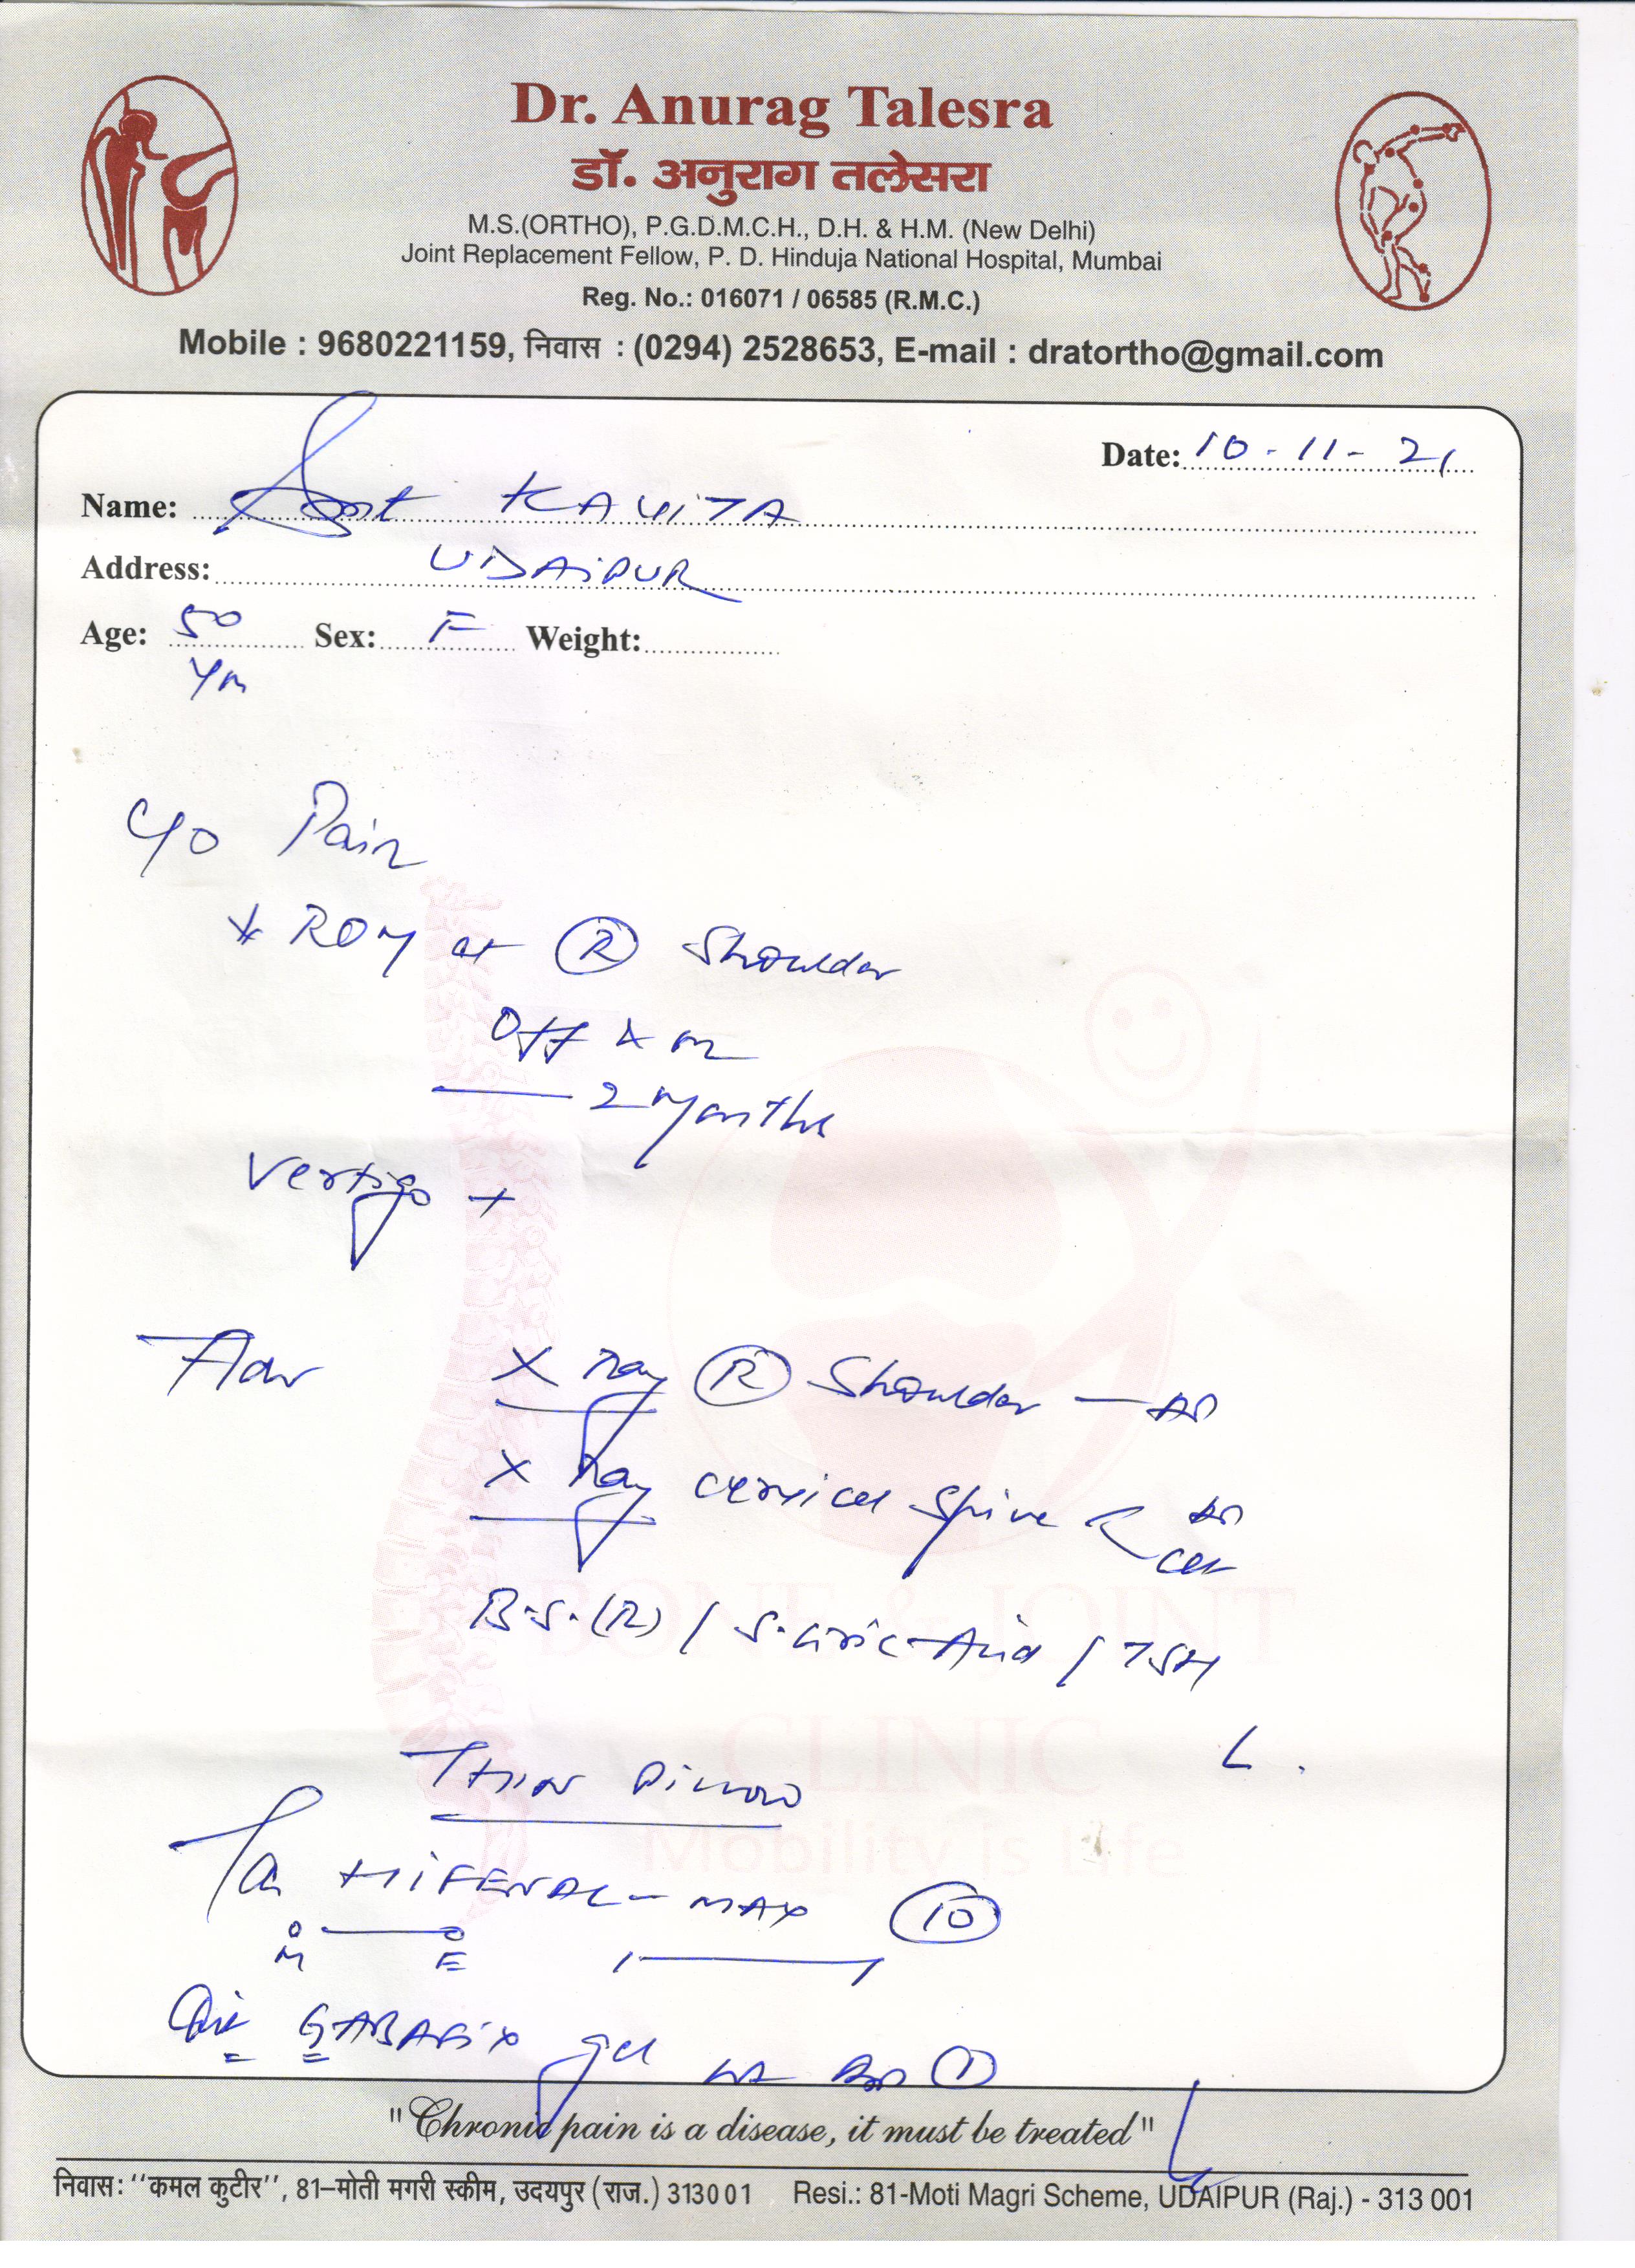 Dr. Anurag Talesra
डॉ. अनुराग तलेसरा
M.S.(ORTHO), P.G.D.M.C.H., D.H. & H.M. (New Delhi)
Joint Replacement Fellow, P. D. Hinduja National Hospital, Mumbai
Reg. No.: 016071 / 06585 (R.M.C.)
Mobile : 9680221159, निवास : (0294) 2528653, E-mail : dratortho@gmail.com
Date: 10-11-21
Name: Smt KAVITA
Address: UDAIPUR
Age: 50 Sex: F Weight:
Yrs
C/o Pain
ROM at R Shoulder
Off & on
2 Months
Vertigo +
Adv X Ray R Shoulder — AP
X Ray cervical Spine AP
Lat
B.S.(R) / S. Uric Acid / TSH
THIN PILLOW
BONE & JOINT
CLINIC
Mobility is Life
HIFENAC-MAX 10
M E
GABAFIX gel 1
"Chronic pain is a disease, it must be treated"
निवास: "कमल कुटीर", 81–मोती मगरी स्कीम, उदयपुर (राज.) 313001 Resi.: 81-Moti Magri Scheme, UDAIPUR (Raj.) - 313 001